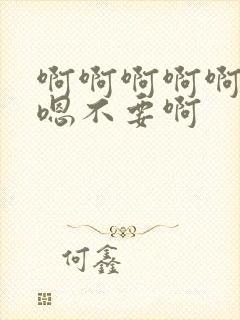 啊啊啊啊啊
嗯不要啊
何鑫